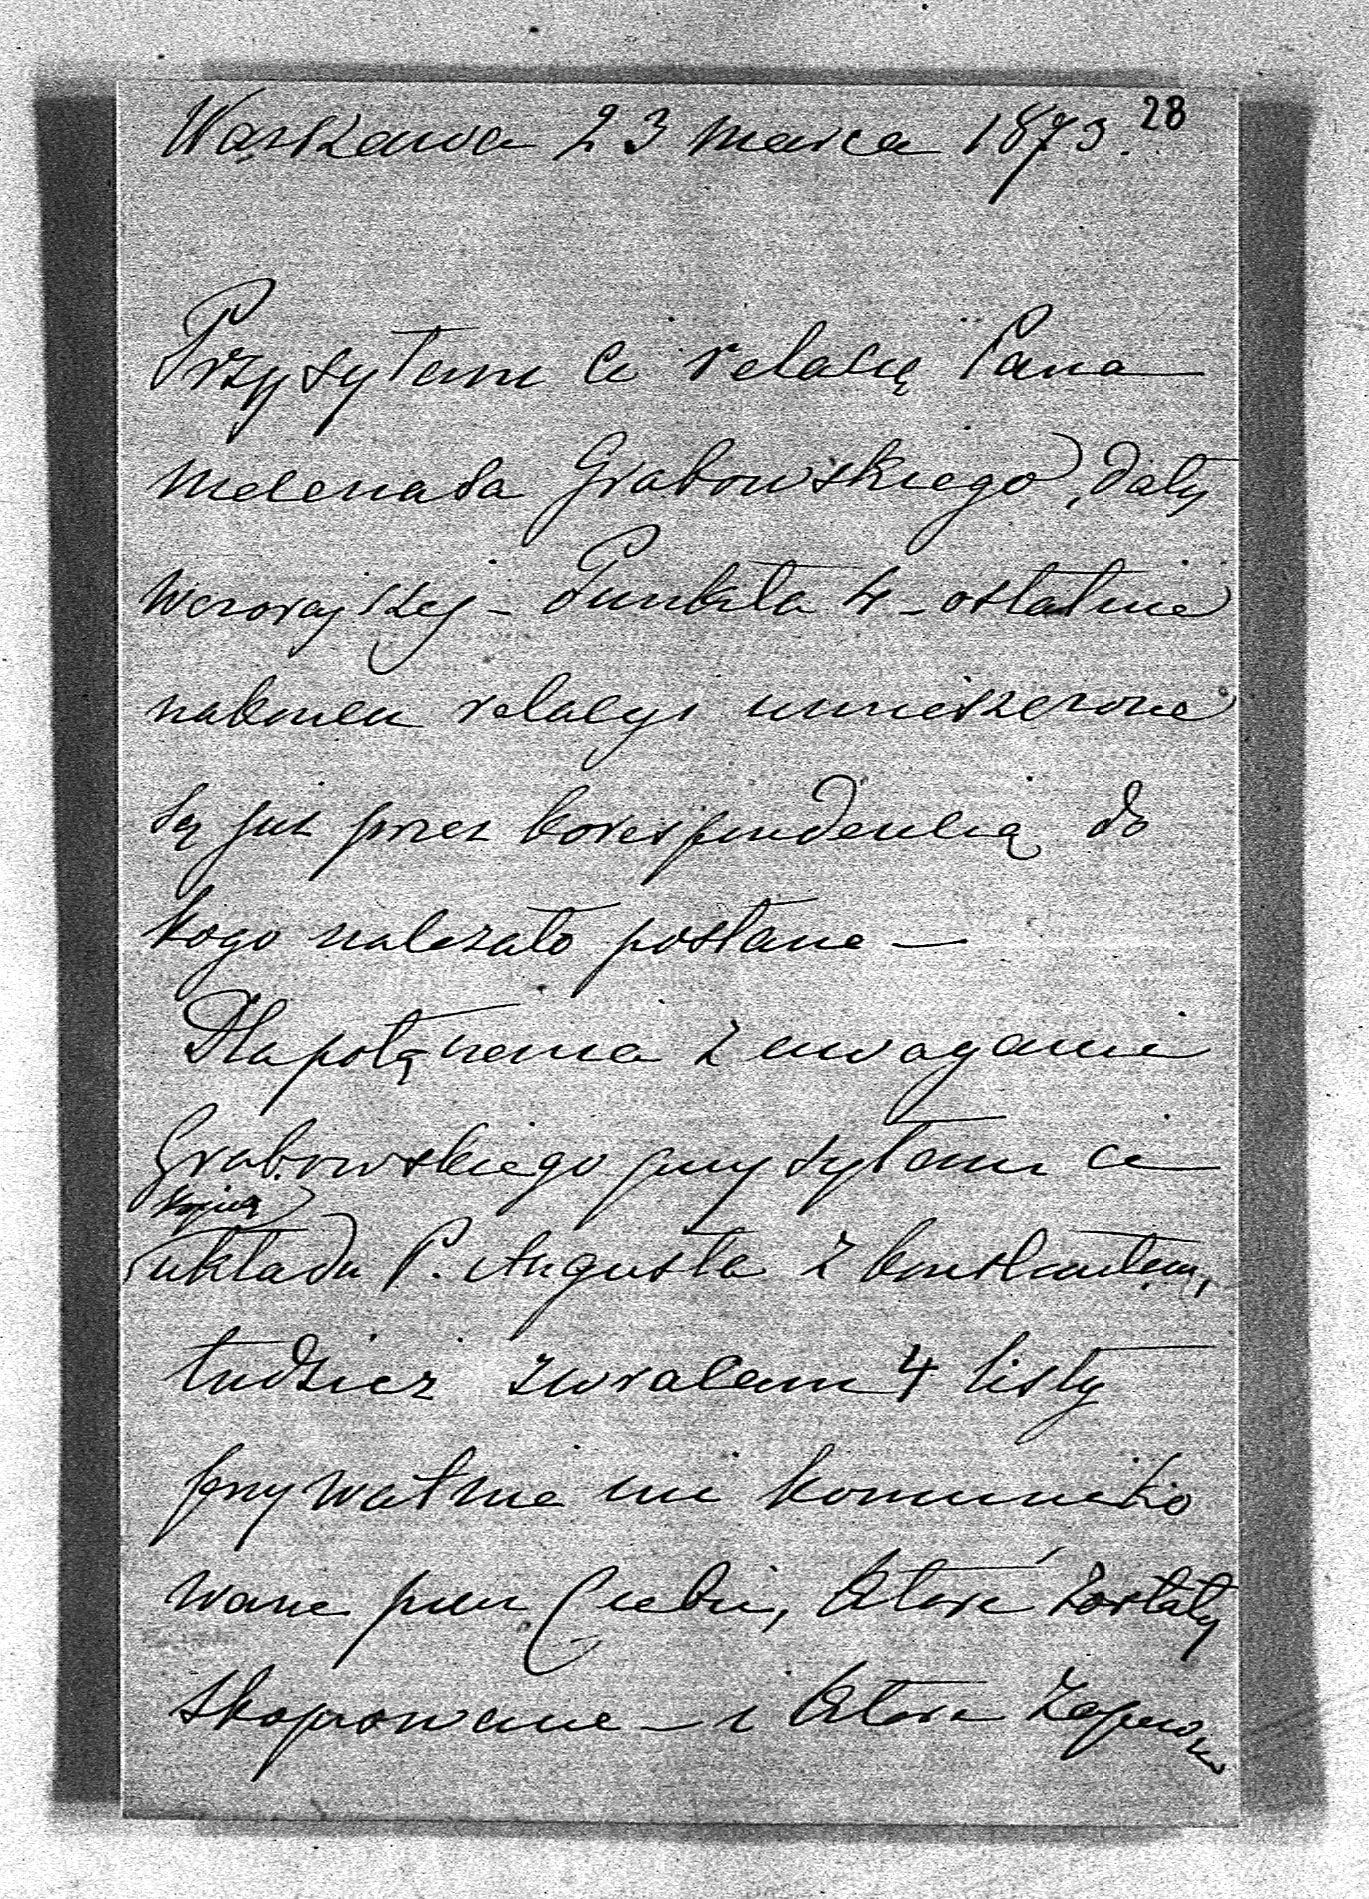 28
Warszawa 23 marca 1873.
Przysyłam ci relacię Pana
Mecenasa Grabowskiego, daty
wczorajszej – Punkta 4 – ostatnie
nakońcu relacyi umieszczone
są już przez korespondencią do
kogo należało posłane —
Dla połączenia z uwagami
Grabowskiego przysyłam ci
kopią
układu P. Augusta z Konstantem,
tudzież zwracam 4 listy
prywatnie mi komuniko
wane przez Ciebie, które zostały
skopiowane – i które zapewne